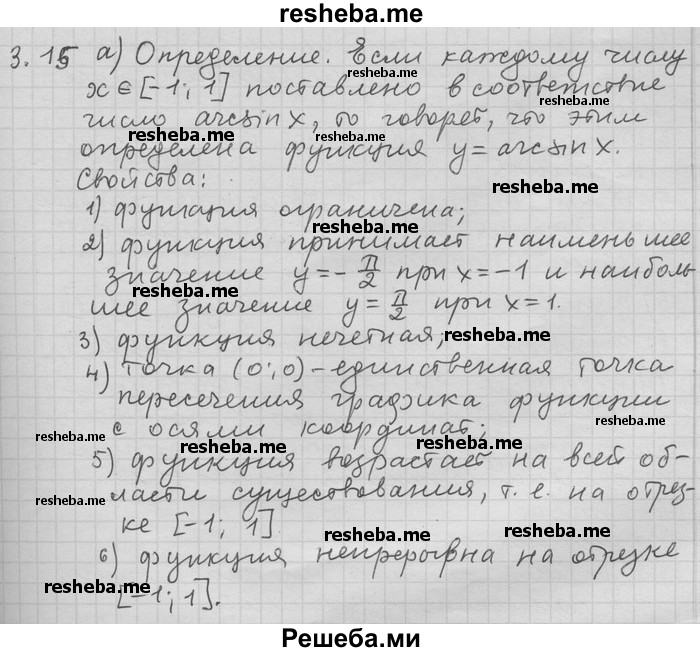 resheba.me
3.15 а) Определение. Если каждому числу
resheba.me
x ∈ [-1; 1] поставлено в соответствие
resheba.me
число arcsin x, то говорят, что этим
resheba.me resheba.me
определена функция y = arcsin x.
Свойства:
resheba.me
1) функция ограничена;
2) функция принимает наименьшее
resheba.me
значение y = - π/2 при x = -1 и наиболь
resheba.me
шее значение y = π/2 при x = 1.
3) функция нечетная;
resheba.me
4) точка (0; 0) - единственная точка
resheba.me
пересечения графика функции
resheba.me
с осями координат;
resheba.me resheba.me
5) функция возрастает на всей об-
ласти существования, т. е. на отрез-
resheba.me
ке [-1; 1]
resheba.me resheba.me
6) функция непрерывна на отрезке
resheba.me
[-1; 1].
Решеба.ми